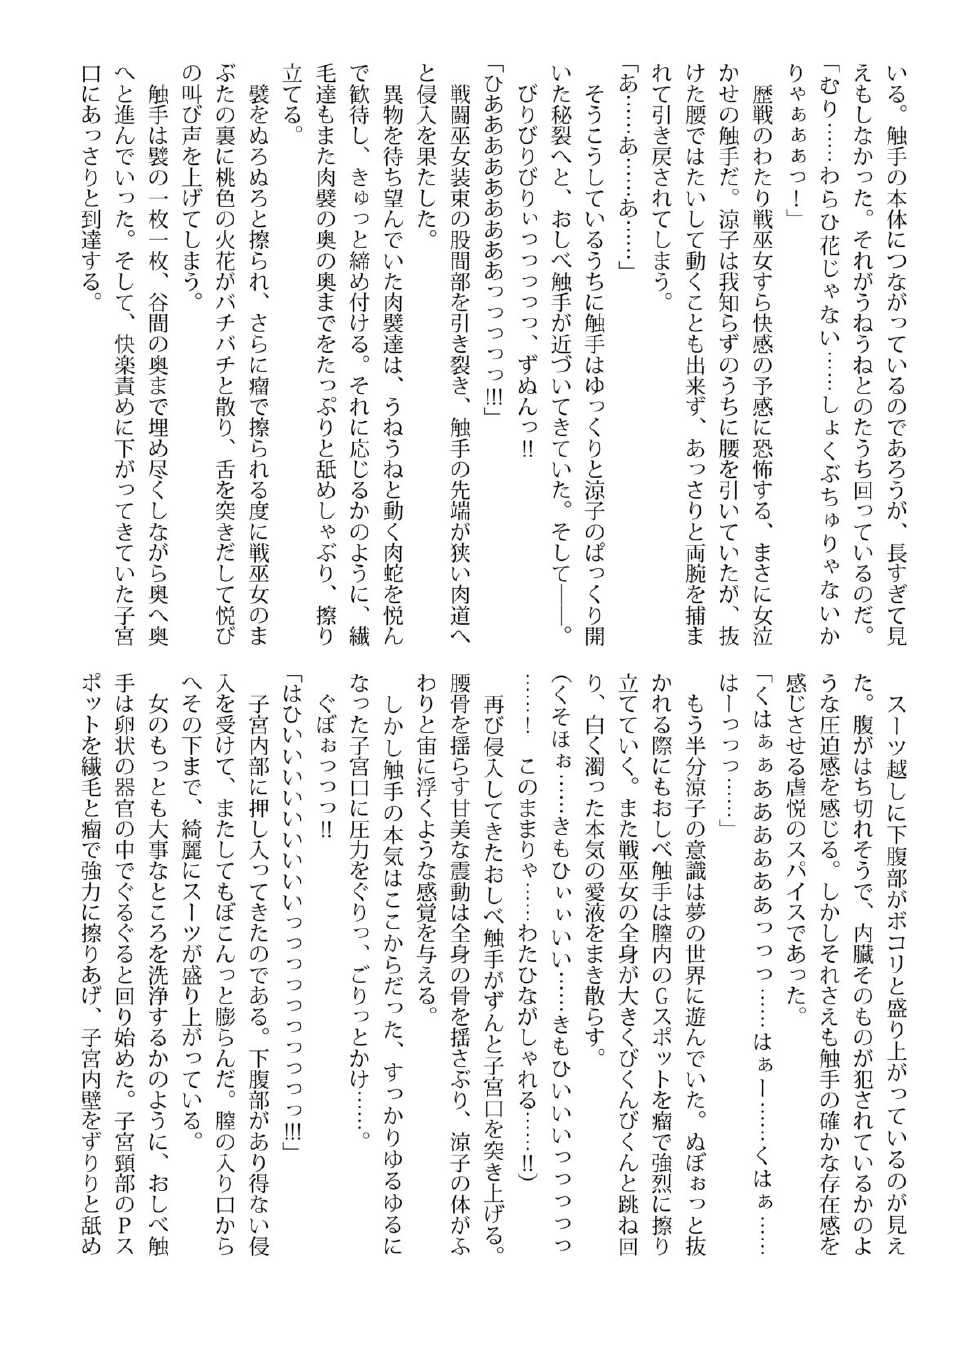 いる。触手の本体につながっているのであろうが、長すぎて見
えもしなかった。それがうねうねとのたうち回っているのだ。
「むり……わらひ花じゃない……しょくぶちゅりゃないか
りゃぁぁぁっ！」
歴戦のわたり戦巫女すら快感の予感に恐怖する、まさに女泣
かせの触手だ。涼子は我知らずのうちに腰を引いていたが、抜
けた腰ではたいして動くことも出来ず、あっさりと両腕を捕ま
れて引き戻されてしまう。
「あ……あ……あ……」
そうこうしているうちに触手はゆっくりと涼子のぱっくり開
いた秘裂へと、おしべ触手が近づいてきていた。そして――。
びりびりびりぃっっっっっ、ずぬんっ!!
「ひああああああああああっっっっっ!!!」
戦闘巫女装束の股間部を引き裂き、触手の先端が狭い肉道へ
と侵入を果たした。
異物を待ち望んでいた肉襞達は、うねうねと動く肉蛇を悦ん
で歓待し、きゅっと締め付ける。それに応じるかのように、繊
毛達もまた肉襞の奥の奥までをたっぷりと舐めしゃぶり、擦り
立てる。
襞をぬろぬろと擦られ、さらに瘤で擦られる度に戦巫女のま
ぶたの裏に桃色の火花がバチバチと散り、舌を突きだして悦び
の叫び声を上げてしまう。
触手は襞の一枚一枚、谷間の奥まで埋め尽くしながら奥へ奥
へと進んでいった。そして、快楽責めに下がってきていた子宮
口にあっさりと到達する。
スーツ越しに下腹部がボコリと盛り上がっているのが見え
た。腹がはち切れそうで、内臓そのものが犯されているかのよ
うな圧迫感を感じる。しかしそれさえも触手の確かな存在感を
感じさせる虐悦のスパイスであった。
「くはぁぁああああああっっっ……はぁー……くはぁ……
はーっっっ……」
もう半分涼子の意識は夢の世界に遊んでいた。ぬぼぉっと抜
かれる際にもおしべ触手は膣内のＧスポットを瘤で強烈に擦り
立てていく。また戦巫女の全身が大きくびくんびくんと跳ね回
り、白く濁った本気の愛液をまき散らす。
（くそほぉ……きもひぃぃいい……きもひいいいっっっっっ
……！　このままりゃ……わたひながしゃれる……!!）
再び侵入してきたおしべ触手がずんと子宮口を突き上げる。
腰骨を揺らす甘美な震動は全身の骨を揺さぶり、涼子の体がふ
わりと宙に浮くような感覚を与える。
しかし触手の本気はここからだった、すっかりゆるゆるに
なった子宮口に圧力をぐりっ、ごりっとかけ……。
ぐぼぉっっっ!!
「はひいいいいいいいいいっっっっっっっっっっ!!!」
子宮内部に押し入ってきたのである。下腹部があり得ない侵
入を受けて、またしてもぼこんっと膨らんだ。膣の入り口から
へその下まで、綺麗にスーツが盛り上がっている。
女のもっとも大事なところを洗浄するかのように、おしべ触
手は卵状の器官の中でぐるぐると回り始めた。子宮頸部のＰス
ポットを繊毛と瘤で強力に擦りあげ、子宮内壁をずりりと舐め